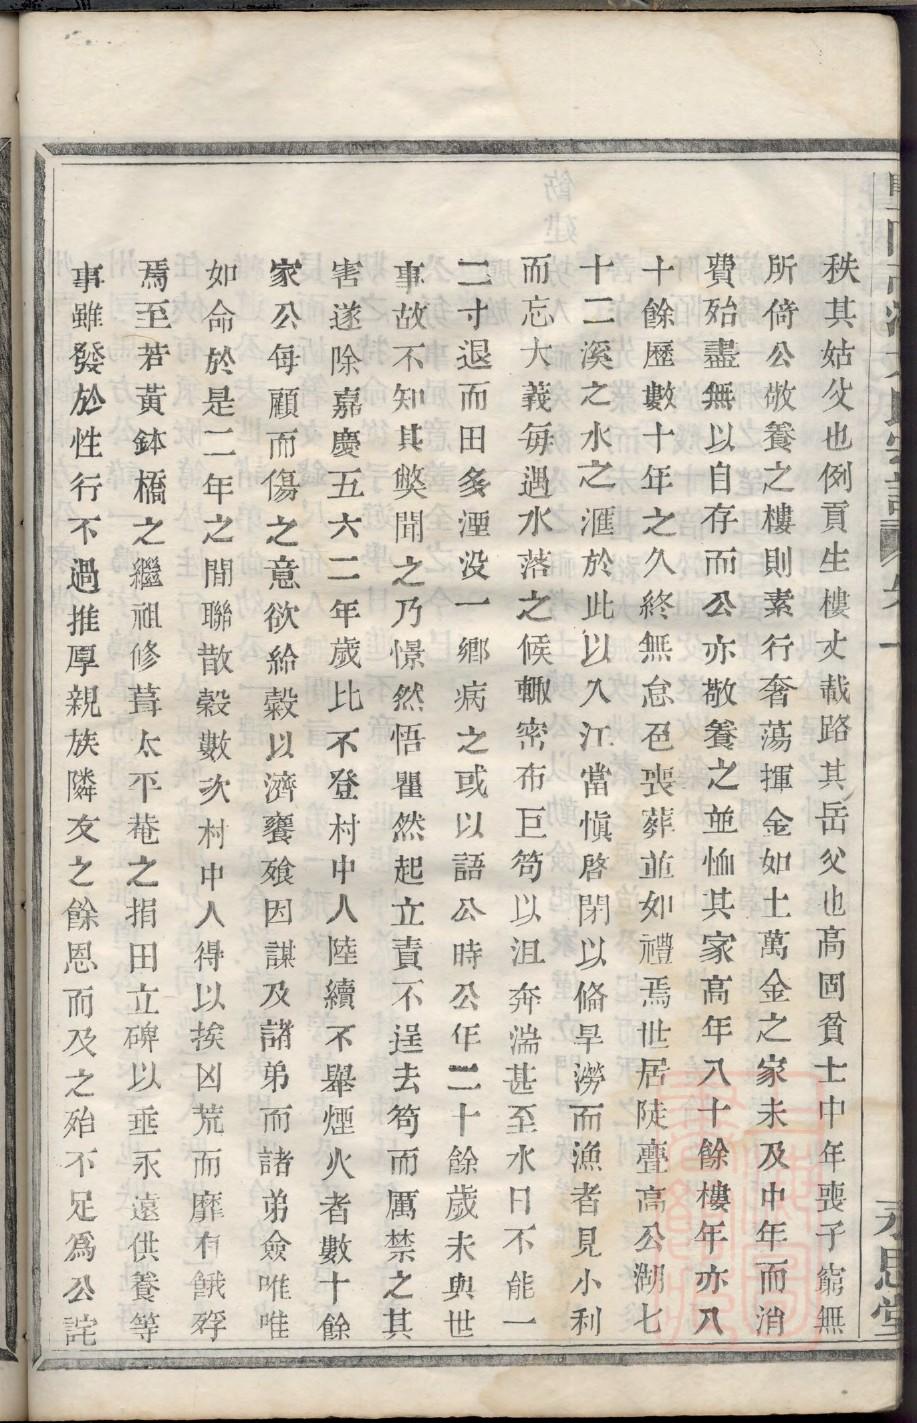 秩其姑父也例貢生樓丈載路其岳父也高固貧士中年喪子窮無
所倚公敬養之樓則素行奢蕩揮金如土萬金之家未及中年而消
費殆盡無以自存而公亦敬養之並恤其家高年八十餘樓年亦八
十餘歷數十年之久終無怠色喪葬並如禮焉世居陡亹高公湖七
十二溪之水之滙於此以入江當慎啓閉以俻旱澇而漁者見小利
而忘大義每遇水落之候輙密布巨笱以沮奔湍甚至水日不能一
二寸退而田多湮没一鄉病之或以語公時公年二十餘歲未與世
事故不知其獘聞之乃憬然悟瞿然起立責不逞去笱而厲禁之其
害遂除嘉慶五六二年歲比不登村中人陸續不舉煙火者數十餘
家公每顧而傷之意欲給穀以濟饔飧因謀及諸弟而諸弟僉唯唯
如命於是二年之間聯散穀數次村中人得以挨凶荒而靡有餓殍
焉至若黃鉢橋之繼祖修葺太平菴之捐田立碑以垂永遠供養等
事雖發於性行不過推厚親族隣友之餘恩而及之殆不足為公詫
永思堂